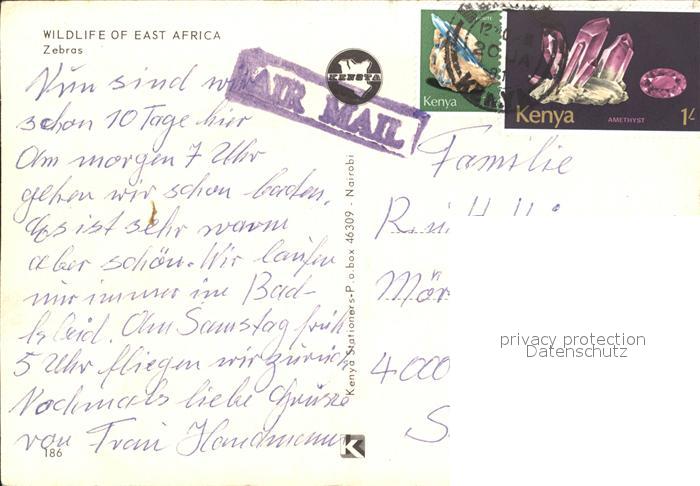 WILDLIFE OF EAST AFRICA
Zebras
Nun sind wir
schon 10 Tage hier
Am morgen 7 Uhr
gehen wir schon baden.
Es ist sehr warm
aber schön. Wir laufen
nur immer im Bad-
kleid. Am Samstag früh
5 Uhr fliegen wir zurück
Nochmals liebe Grüsse
von Frau Handmann
186
AIR MAIL
KENSTA
Kenya Stationers-P.o.box 46309 - Nairobi
K
Kenya
Kenya
AMETHYST
1/-
KENYA
Familie
4000
privacy protection
Datenschutz